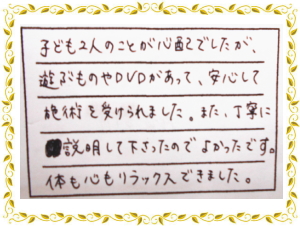 子ども2人のことが心配でしたが、
遊ぶものやDVDがあって、安心して
施術を受けられました。また、丁寧に
説明して下さったのでよかったです。
体も心もリラックスできました。